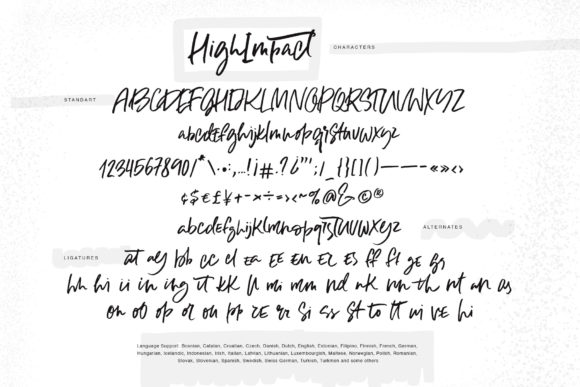 HighImpact
CHARACTERS
STANDART
ABCDEFGHIJKLMNOPQRSTUVWXYZ
abcdefghijklmnopqrstuvwxyz
1234567890/*\·•:,...!¡#.?¿"';/_{}[]()—–-«»<>
¢$€£¥+-×÷=><~%@&©®
abcdefghijklmnopqrstuvwxyz
ALTERNATES
LIGATURES
at ay bb cc cl ea EE en El ES ff fl ge gs
hh hi ii in ing it kk ll mi mm nd nk nn th nt an as
on ot op or ou pp re rr si ss st to tt ui ve hi
Language Support: Bosnian, Catalan, Croatian, Czech, Danish, Dutch, English, Estonian, Filipino, Finnish, French, German,
Hungarian, Icelandic, Indonesian, Irish, Italian, Latvian, Lithuanian, Luxembourgish, Maltese, Norwegian, Polish, Romanian,
Slovak, Slovenian, Spanish, Swedish, Swiss German, Turkish, Turkmen and some others